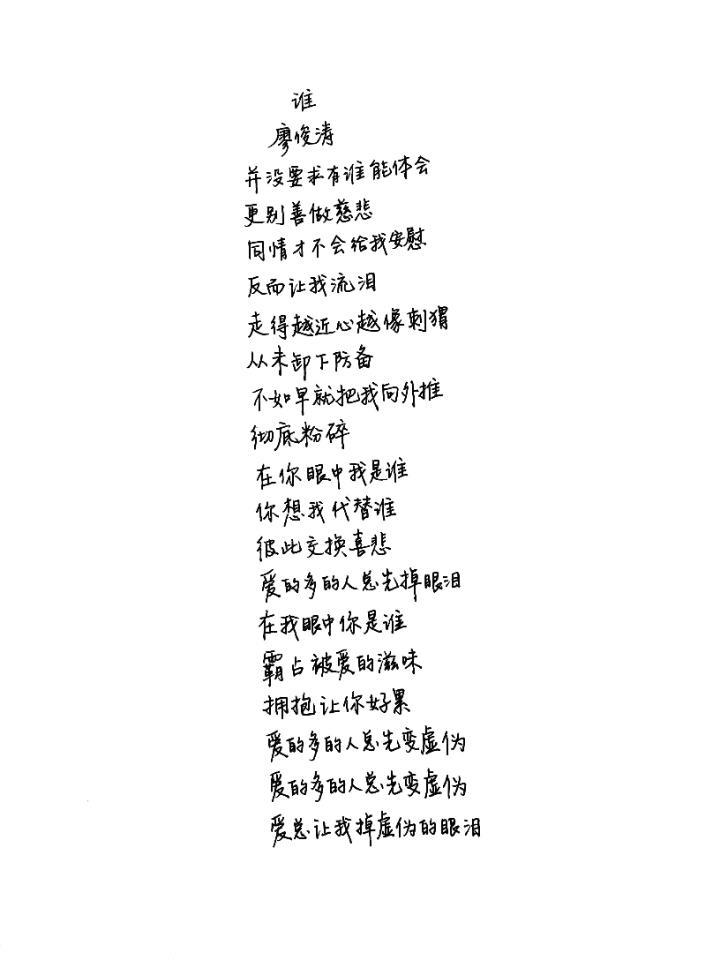 谁
廖俊涛
并没要求有谁能体会
更别善做慈悲
同情才不会给我安慰
反而让我流泪
走得越近心越像刺猬
从未卸下防备
不如早就把我向外推
彻底粉碎
在你眼中我是谁
你想我代替谁
彼此交换喜悲
爱的多的人总先掉眼泪
在我眼中你是谁
霸占被爱的滋味
拥抱让你好累
爱的多的人总先变虚伪
爱的多的人总先变虚伪
爱总让我掉虚伪的眼泪